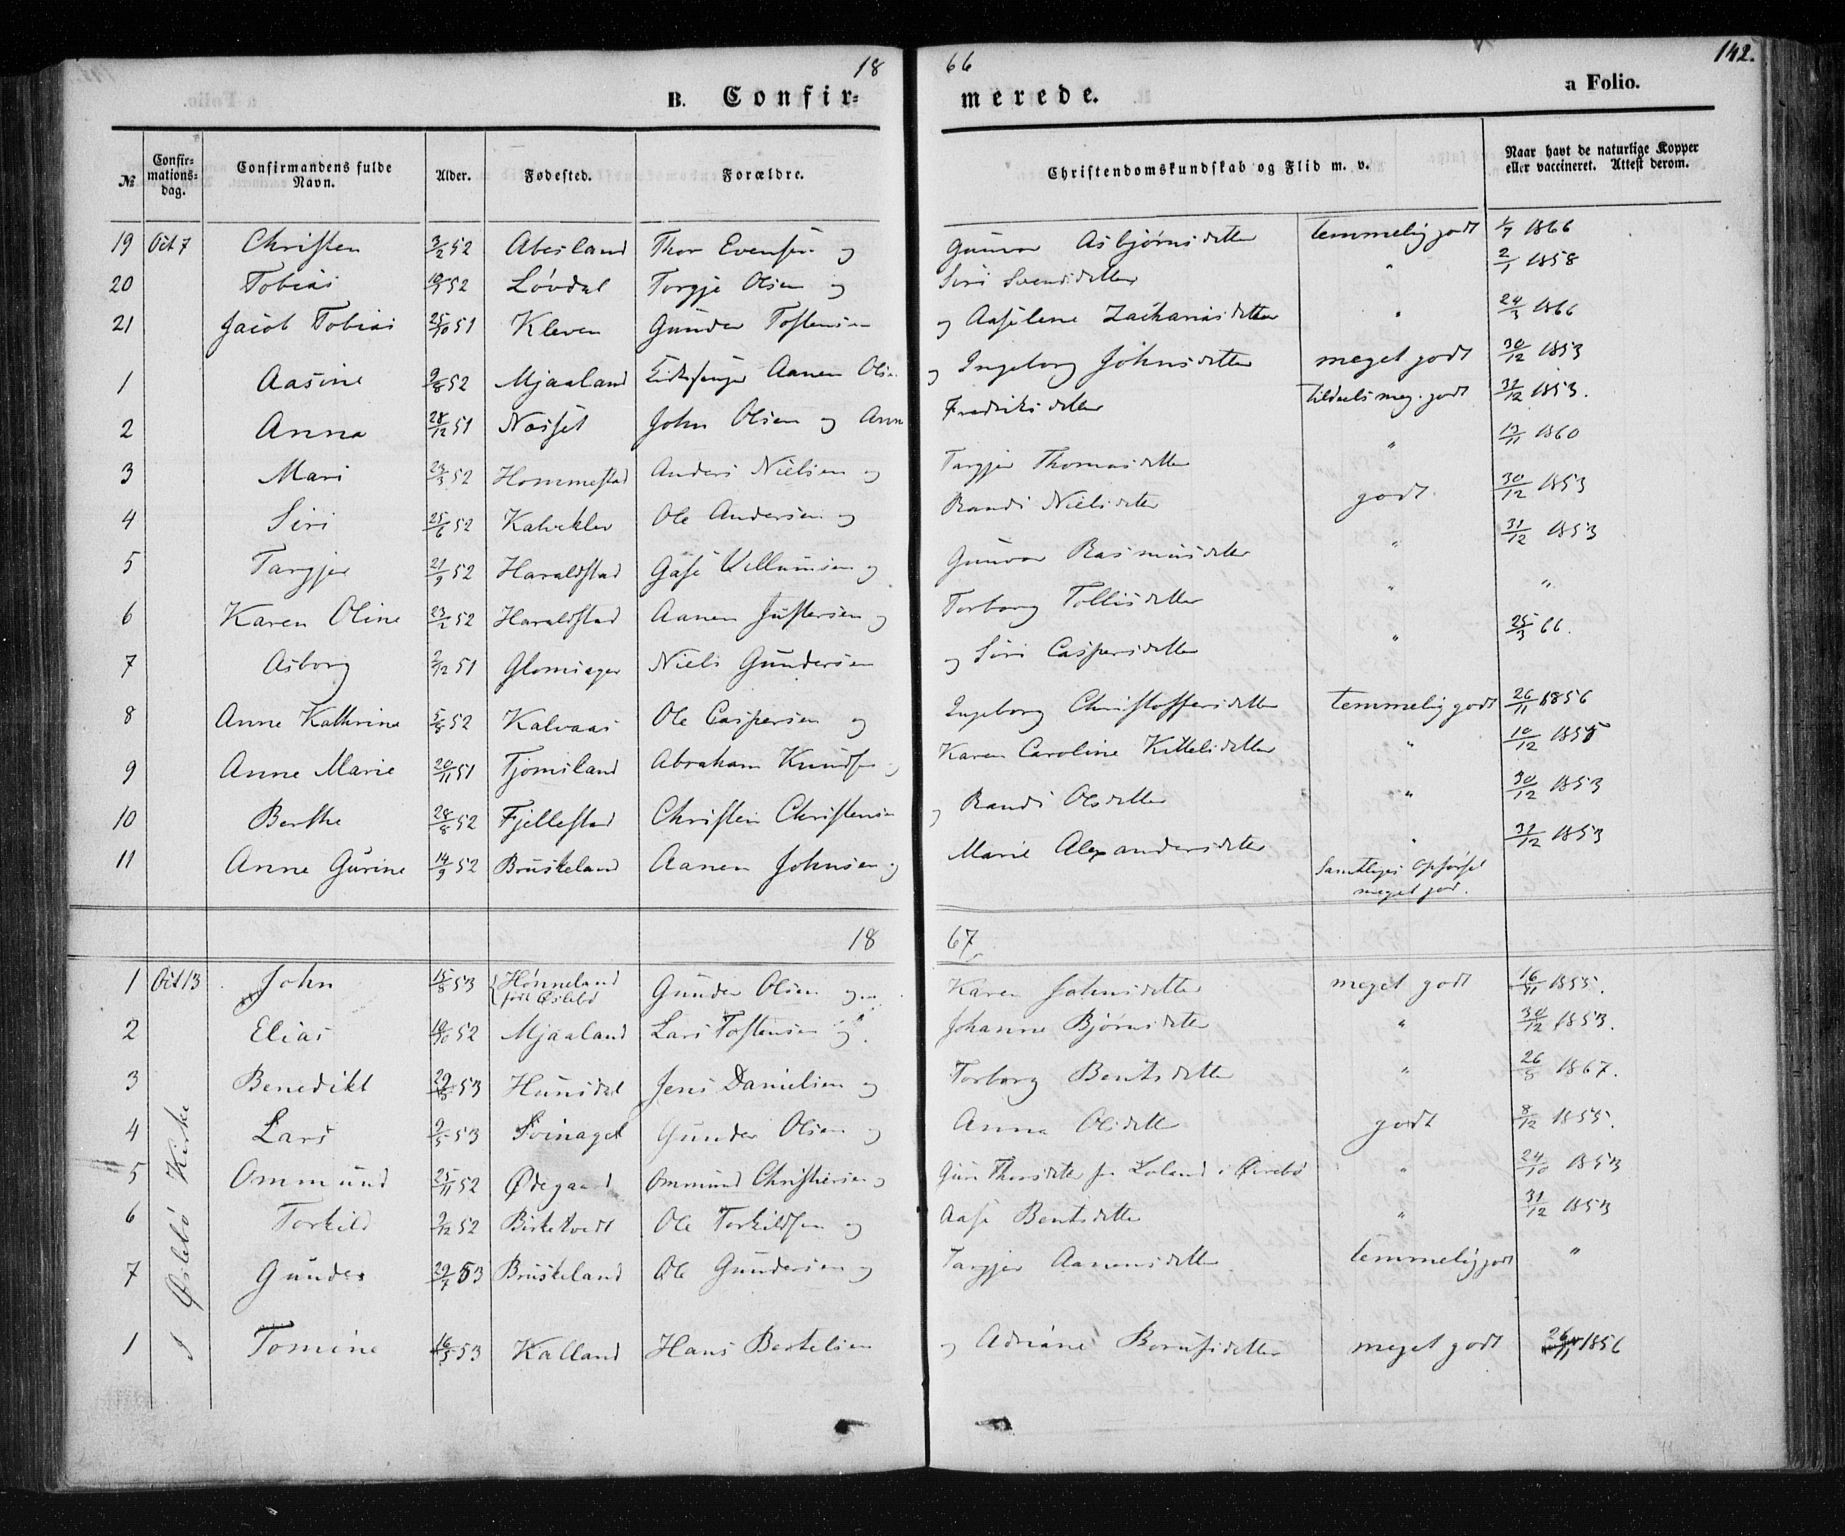 18 66 142.
B. Confirmerede. a Folio.
№ Confirmationsdag. Confirmandens fulde Navn. Alder. Fødested. Forældre. Christendomskundskab og Flid m. v. Naar havt de naturlige Kopper eller vaccineret. Attest derom.
19 Oct 7 Christen 3/2 52 Abesland Thor Evensen og Gunvor Asbjørnsdatter temmelig godt 1/7 1866
20 Tobias 52 Løvdal Torgje Olsen og Siri Svendsdatter " 2/1 1858
21 Jacob Tobias 25/10 51 Kleven Gunder Tostensen og Aaselene Zachariasdatter " 24/3 1866
1 Aasine 9/8 52 Mjaaland Aanen Olsen og Ingeborg Johnsdatter meget godt 30/12 1853
2 Anna 28/12 51 Nøsset John Olsen og Anne Fredriksdatter tildeels meg. godt 31/12 1853.
3 Mari 23/3 52 Hommestad Anders Nielsen og Targjer Thomasdatter " 13/11 1860
4 Siri 25/6 52 Kalvekler Ole Andersen og Randi Nielsdatter godt 30/12 1853
5 Targjer 21/9 52 Haraldstad Gase Villumsen og Gunvor Rasmusdatter " 31/12 1853
6 Karen Oline 23/2 52 Haraldstad Aanen Justersen og Torborg Tollisdatter " "
7 Asborg 2/12 51 Glomsager Niels Gundersen og Siri Caspersdatter " 25/3 66.
8 Anne Kathrine 5/8 52 Kalvaas Ole Caspersen og Ingeborg Christoffersdatter temmelig godt 26/11 1856
9 Anne Marie 20/11 51 Tjomsland Abraham Knudsen og Karen Caroline Kittelsdatter " 10/12 1855
10 Berthe 28/8 52 Fjellestad Christen Christensen og Randi Olsdatter " 30/12 1853
11 Anne Gurine 14/9 52 Bruskeland Aanen Johnsen og Marie Alexandersdatter " 31/12 1853
Samtliges Opførsel meget god.
18 67.
1 Oct 13 John 15/8 53 Hønneland født Øslebø Gunder Olsen og Karen Johnsdatter meget godt 16/11 1855.
2 Elias 10/10 52 Mjaaland Lars Tostensen og Johanne Bjørnsdatter " 30/12 1853.
3 Benedikt 29/8 53 Hunsdal Jens Danielsen og Torborg Bentsdatter " 26/8 1867.
4 Lars 2/5 53 Svinaget Gunder Olsen og Anna Olsdatter godt 8/12 1855.
5 Ommund 25/11 52 Ødegaard Ommund Christiersen og Guri Thorsdatter fr Loland i Øvrebø " 24/10 1853
6 Torkild 2/12 52 Birketvedt Ole Torkildsen og Aase Bentsdatter " 31/12 1853
7 Gunder 29/7 53 Bruskeland Ole Gundersen og Targjer Aanensdatter temmelig godt "
1 Tomine 16/5 53 Kalland Hans Bertelsen og Adriane Bornsidatter meget godt 26/11 1856
I Øslebø Kirke